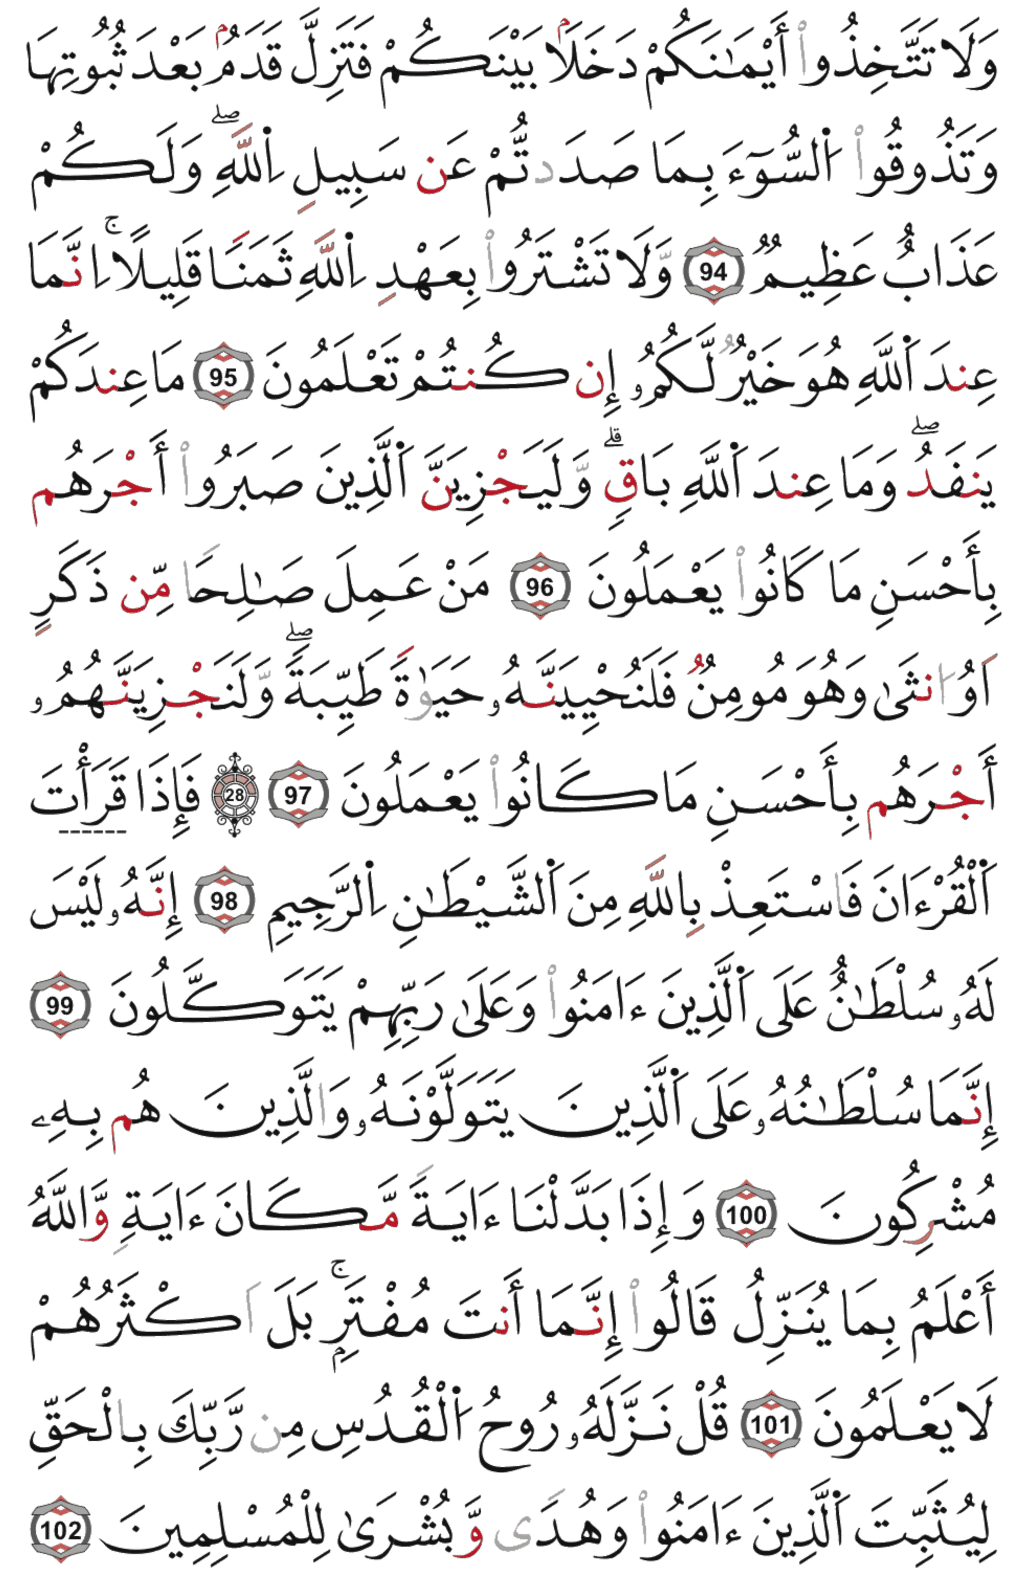 وَلَا تَتَّخِذُواْ أَيْمَـٰنَكُمْ دَخَلَاۢ بَيْنَكُمْ فَتَزِلَّ قَدَمُۢ بَعْدَ ثُبُوتِهَا
وَتَذُوقُواْ اُ۬لسُّوٓءَ بِمَا صَدَدتُّمْ عَن سَبِيلِ اِ۬للَّهِۖ وَلَكُمْ
عَذَابٌ عَظِيمٌ 94 وَلَا تَشْتَرُواْ بِعَهْدِ اِ۬للَّهِ ثَمَنًا قَلِيلًاۚ اِنَّمَا
عِندَ اَ۬للَّهِ هُوَ خَيْرٌ لَّكُمُۥ إِن كُنتُمْ تَعْلَمُونَ 95 مَا عِندَكُمْ
يَنفَدُۖ وَمَا عِندَ اَ۬للَّهِ بَاقٍۗ وَلَيَجْزِيَنَّ اَ۬لَّذِينَ صَبَرُواْ أَجْرَهُم
بِأَحْسَنِ مَا كَانُواْ يَعْمَلُونَ 96 مَنْ عَمِلَ صَـٰلِحًا مِّن ذَكَرٍ
اَوُ انثَىٰ وَهُوَ مُومِنٌ فَلَنُحْيِيَنَّهُۥ حَيَوٰةً طَيِّبَةًۖ وَلَنَجْزِيَنَّهُمُۥ
أَجْرَهُم بِأَحْسَنِ مَا كَانُواْ يَعْمَلُونَ 97 28 فَإِذَا قَرَأْتَ
اَ۬لْقُرْءَانَ فَاسْتَعِذْ بِاللَّهِ مِنَ اَ۬لشَّيْطَـٰنِ اِ۬لرَّجِيمِ 98 إِنَّهُۥ لَيْسَ
لَهُۥ سُلْطَـٰنٌ عَلَى اَ۬لَّذِينَ ءَامَنُواْ وَعَلَىٰ رَبِّهِمْ يَتَوَكَّلُونَ 99
إِنَّمَا سُلْطَـٰنُهُۥ عَلَى اَ۬لَّذِينَ يَتَوَلَّوْنَهُۥ وَالَّذِينَ هُم بِهِۦ
مُشْرِكُونَ 100 وَإِذَا بَدَّلْنَا ءَايَةً مَّكَانَ ءَايَةٍ وَاللَّهُ
أَعْلَمُ بِمَا يُنَزِّلُ قَالُواْ إِنَّمَا أَنتَ مُفْتَرِۢۚ بَلَ اَكْثَرُهُمْ
لَا يَعْلَمُونَ 101 قُلْ نَزَّلَهُۥ رُوحُ اُ۬لْقُدُسِ مِن رَّبِّكَ بِالْحَقِّ
لِيُثَبِّتَ اَ۬لَّذِينَ ءَامَنُواْ وَهُدًى وَبُشْرَىٰ لِلْمُسْلِمِينَ 102